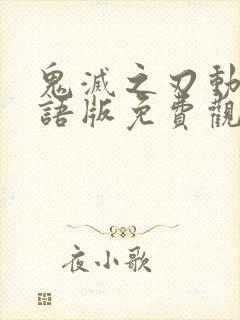 鬼滅之刃動
語版免費觀
夜小歌